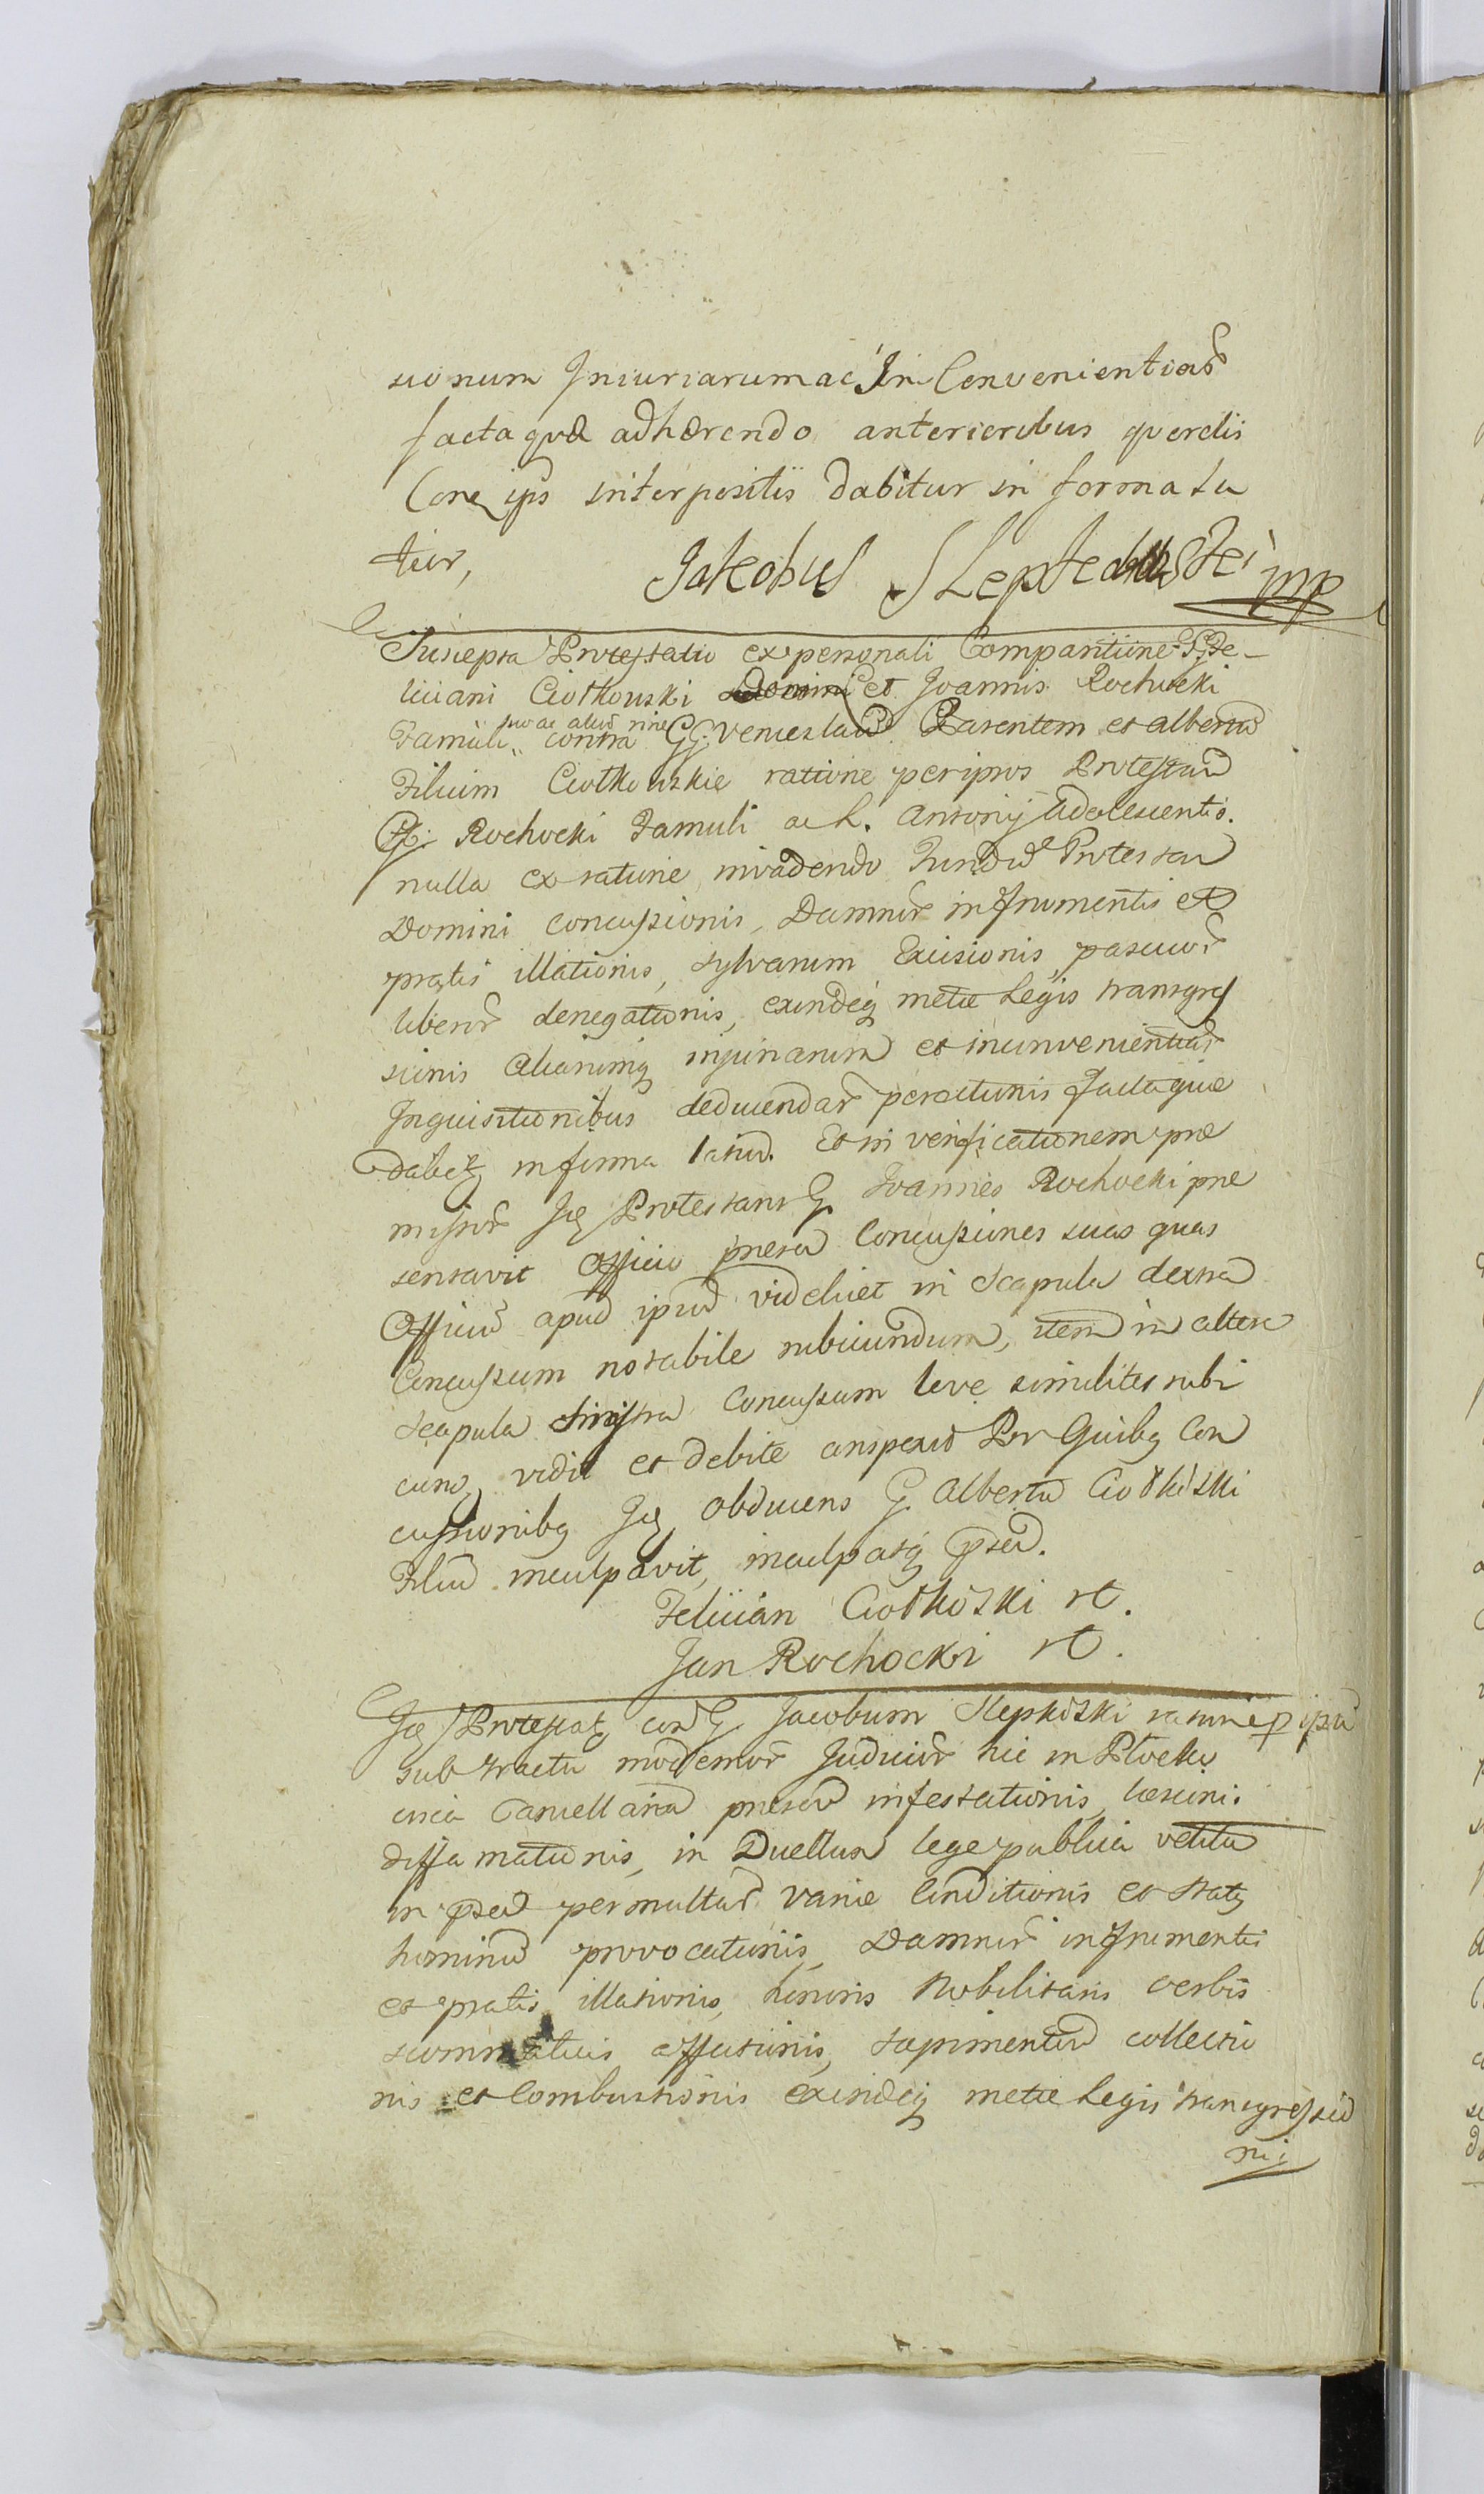 sionum Iniuriarum ac In Convenientiar
facta quæ adhærendo anterioribus querelis
Conq ips interpositis dabitur in forma la
tior,
Jakobus SLepkowskei mp
Suscepta Protestatio ex personali Comparitione G, Fe-
liciani Ciołkowski et Joannis Rochocki
suo ac alior nine
Famuli contra GG. Venceslaū Parentem et Albertū
Filium Ciołkowskie ratione per ipsos Protestan
G. Rochocki Famuli ac h. Antonij Adolescentis.
nulla ex ratione invadendo Fundū Protestan
Domini concussionis, Damnor in frumentis et
pratis illationis, sylvarum Excisionis, pascuor
liberor denegationis, exindeq metæ Legis transgres
sionis Aliarumq injuriarum et inconvenientiar
Inquisitionibus deducendar peractionis facta quæ
dabitz in forma latiū. Et in verificationem præ
missor Ig Protestans G. Joannes Rochocki præ
sentavit Officio præsen Concussiones suas quas
Officiū apud ipsū videlicet in Scapula dextra
Concussum notabile rubicundum, item in altera
Scapula Sinistra Concussum leve similiter rubi
cund vidit et debite conspexit Pro Quibq Con
cussionibq Ig obducens G. Albertū Ciołkoski
Filiū inculpavit, inculpatq præsen.
Felician Ciołkoski mp.
Jan Rochocki mp.
Ig Protestatz con G. Jacobum Slepkoski ratione p ipsū
sub tractu modernor Judicior hic in Płocku
circa Cancellariā præsen infestationis, læsioni.
diffamationis, in Duellum lege publica vetitū
in præsen permultar variæ Conditionis et statq
hominū provocationis, Damnor in frumentis
et pratis illationis, honoris Nobilitaris verbis
scommaticis affectionis, sapimentor collectio
nis et Combustionis exindeq metæ Legis transgressio
nis